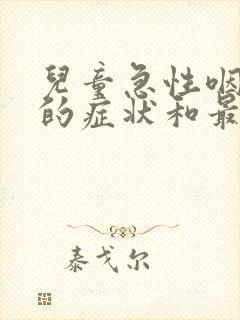 兒童急性咽
的症状和最
泰戈尔